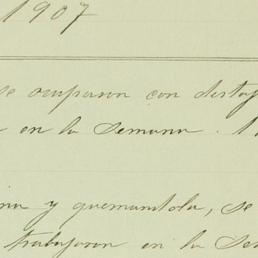 1907
se ocuparon con
en la semana.
y quemandola, se
trabajaron en la